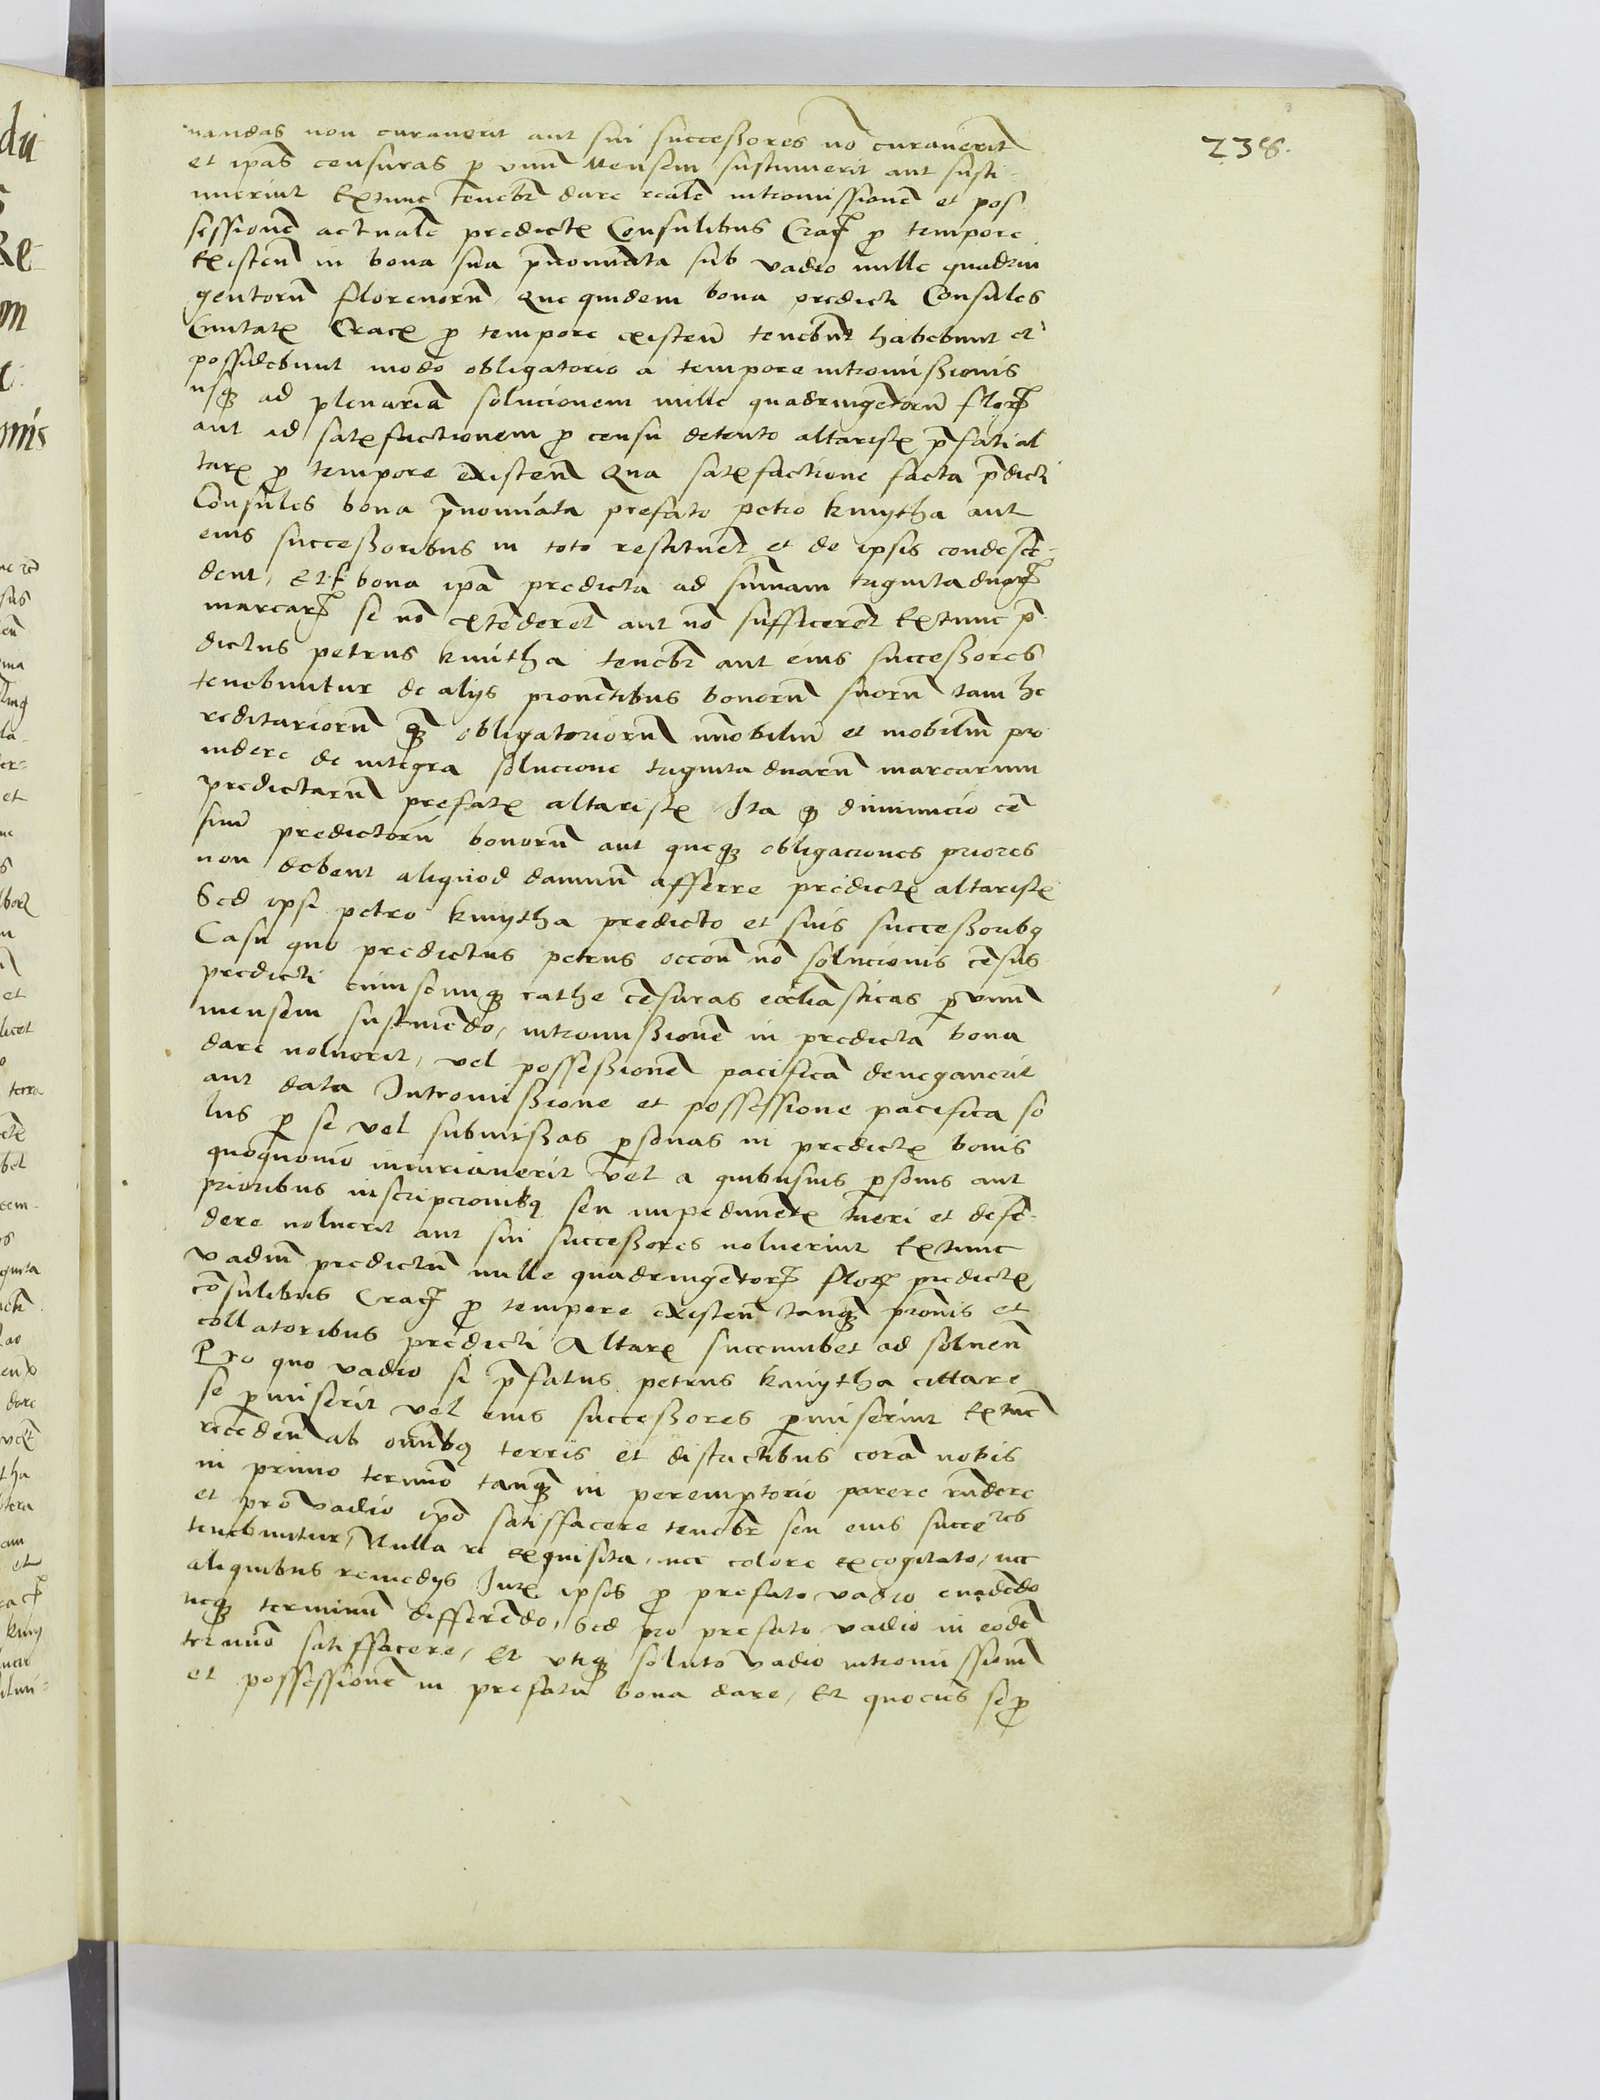 238.
nandas non curaverit aut sui successores nō curaverīt
et ipās censuras p unū Mensem sustinuerit aut susti-
nuerint Extunc tenebr̄ dare realē intromissionē et pos
sessionē actualē predictꝭ Consulibus Cracꝭ p tempore
Existeñ in bona sua p̄nominata sub vadio mille quadrin
gentorū florenorū, Que quidem bona predicti Consules
Civitatꝭ Cracꝭ p tempore existeñ tenebūt habebunt et
possidebunt modo obligatorio a tempore intromissionis
usqꝫ ad plenariā solucionem mille quadringentorū florꝭ
aut ad satꝭfactionem p censu detento altaristꝭ p̄fati al
tarꝭ p tempore existeñ Qua satꝭfactione facta p̄dicti
Consules bona p̄nominata prefato petro kmytha aut
eius successoribus in toto restituēt et de ipsis condescē-
dent, Et si bona ipā predicta ad sum̄am trigintaduarꝝ
marcarꝝ se nō extēderēt aut nō sufficerēt Extunc p̄
dictus petrus kmitha tenebr̄ aut eius successores
tenebuntur de alijs proventibus bonorū suorū tam he
reditariorū qꝫ obligatoriorū im̄obiliū et mobiliū pro
videre de integra solucione triginta duarū marcarum
predictarū prefatꝭ altaristꝭ Ita qp diminucio cē
suū predictorū bonorū aut queqꝫ obligaciones priores
non debent aliquod damnū afferre predictꝭ altaristꝭ
Sed ipsi petro kmytha predicto et suis successoribꝫ
Casu quo predictus petrus occōn nō solucionis cēsus
predicti cuiuscunqꝫ rathe cēsuras eccliasticas p unū
mensem sustinēdo, intromissionē in predicta bona
dare noluerit, vel possessionē pacificā denegaverit
aut data Intromissione et possessione pacifica so
lus p se vel submissas psonas in predictꝭ bonis
quoquomō iniuriaverit vel a quibusvis psonis aut
prioribus inscripcionibꝫ seu impedimētꝭ tueri et defē-
dere noluerit aut sui successores noluerint Extunc
vadiū predictū mille quadringentorꝝ florꝭ predictꝭ
cōsulibus Cracꝭ p tempore existeñ tanqꝫ pronis et
collatoribus predicti Altarꝭ succumbet ad solueñ
Pro quo vadio si p̄fatus petrus kmytha cittare
se pmiserit vel eius successores pmiserint Extūc
recedeñ ab omībꝫ terris et districtibus corā nobis
in primo termīo tanqꝫ in peremptorio parere rn̄dere
et pro vadio ipō satisfacere tenebr̄ seu eius succeres
tenebuntur, Nulla re exquisita, nec colore excogitato, nec
aliquibus remedijs Jurꝭ ipsos p prefato vadio evadēdo
neqꝫ terminū differēdo, Sed pro prefato vadio in eodē
termīo satisfacere, Et utiqꝫ soluto vadio intromissionē
et possessionē in prefata bona dare, Et quociēs sep